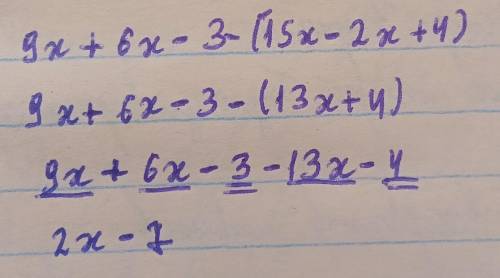 9x + 6x - 3 - (15x - 2x + 4)
9x + 6x - 3 - (13x + 4)
9x + 6x - 3 - 13x - 4
2x - 7